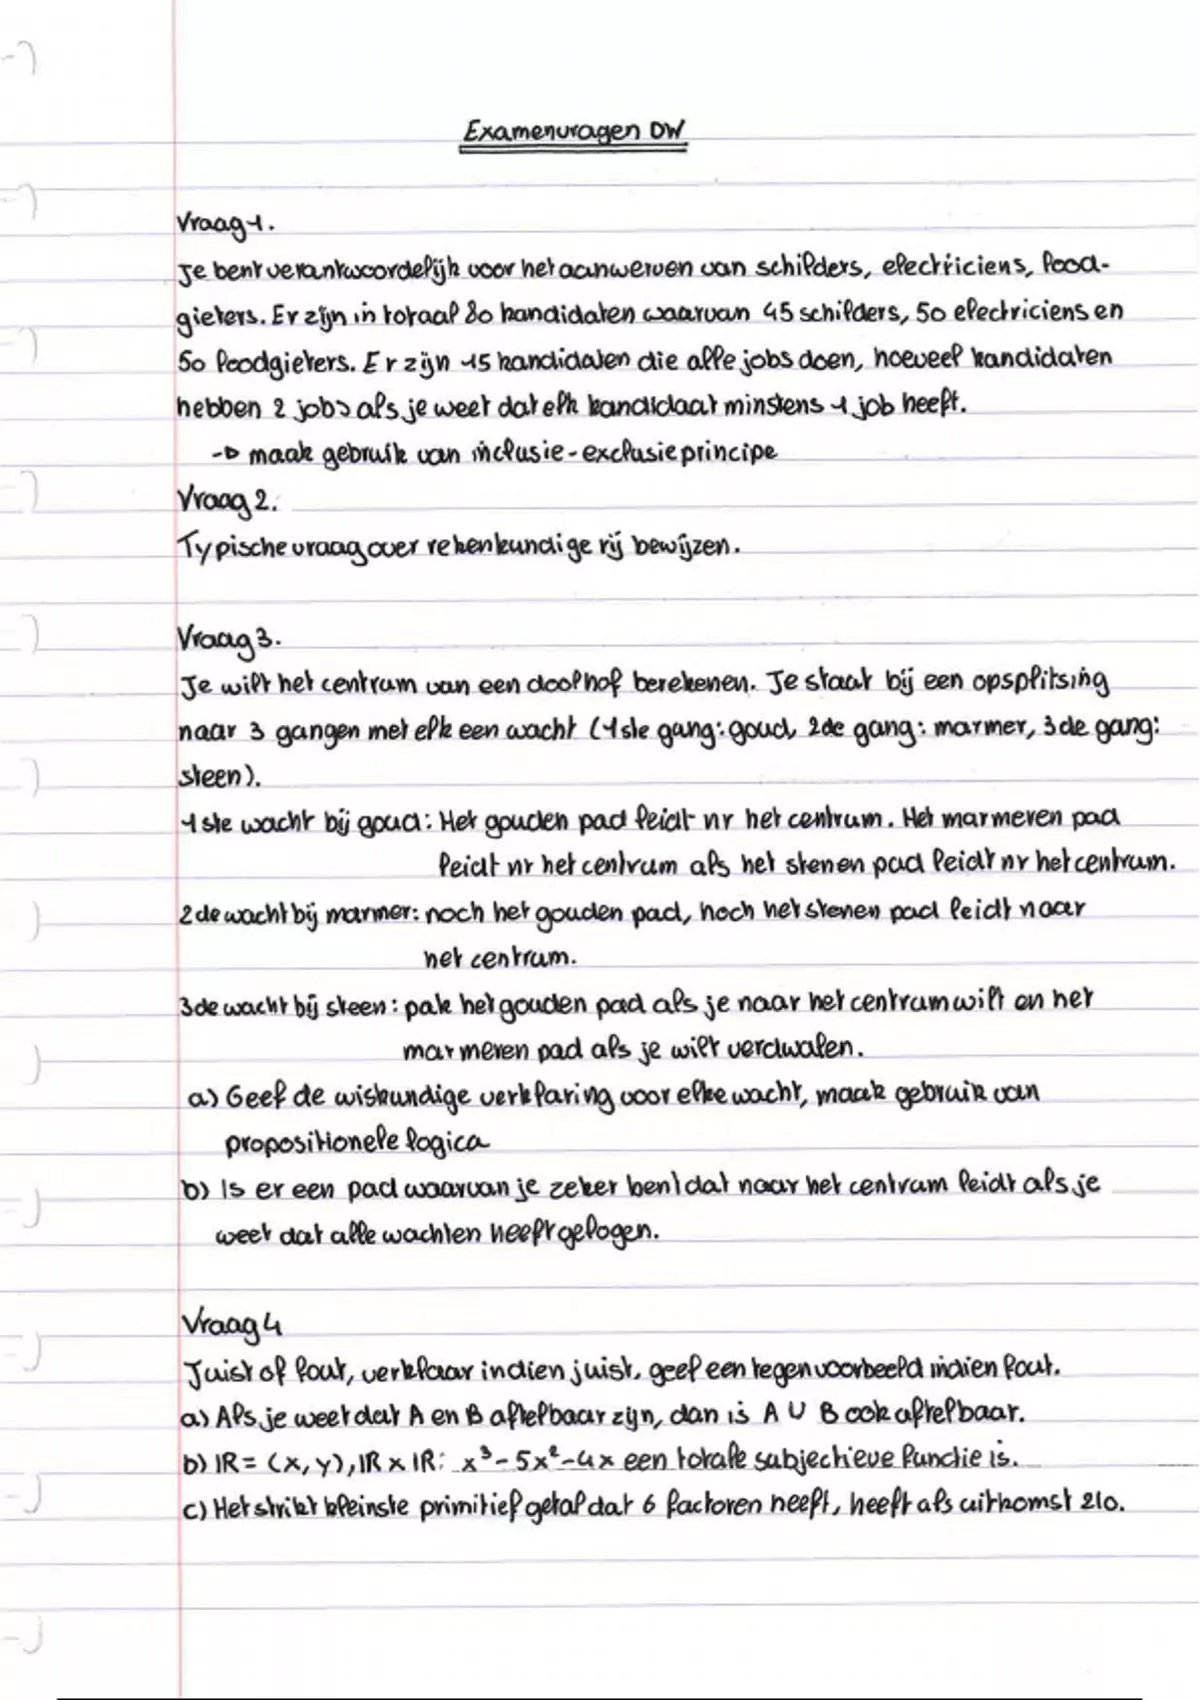 Examenvragen DW
Vraag 1.
Je bent verantwoordelijk voor het aanwerven van schilders, electriciens, lood-
gieters. Er zijn in totaal 80 kandidaten waarvan 45 schilders, 50 electriciens en
50 loodgieters. Er zijn 15 kandidaten die alle jobs doen, hoeveel kandidaten
hebben 2 jobs als je weet dat elk kandidaat minstens 1 job heeft.
→ maak gebruik van inclusie-exclusieprincipe
Vraag 2.
Typische vraag over rekenkundige rij bewijzen.
Vraag 3.
Je wilt het centrum van een doolhof berekenen. Je staat bij een opsplitsing
naar 3 gangen met elk een wacht (1ste gang: goud, 2de gang: marmer, 3de gang:
steen).
1ste wacht bij goud: Het gouden pad leidt nr het centrum. Het marmeren pad
leidt nr het centrum als het stenen pad leidt nr het centrum.
2de wacht bij marmer: noch het gouden pad, noch het stenen pad leidt naar
het centrum.
3de wacht bij steen: pak het gouden pad als je naar het centrum wilt en het
marmeren pad als je wilt verdwalen.
a) Geef de wiskundige verklaring voor elke wacht, maak gebruik van
propositionele logica
b) Is er een pad waarvan je zeker bent dat naar het centrum leidt als je
weet dat alle wachten heeft gelogen.
Vraag 4
Juist of fout, verklaar indien juist, geef een tegenvoorbeeld indien fout.
a) Als je weet dat A en B aftelbaar zijn, dan is A ∪ B ook aftelbaar.
b) IR = (x, y), IR x IR: x³ - 5x² - 4x een totale subjectieve functie is.
c) Het strikt kleinste primitief getal dat 6 factoren heeft, heeft als uitkomst 210.